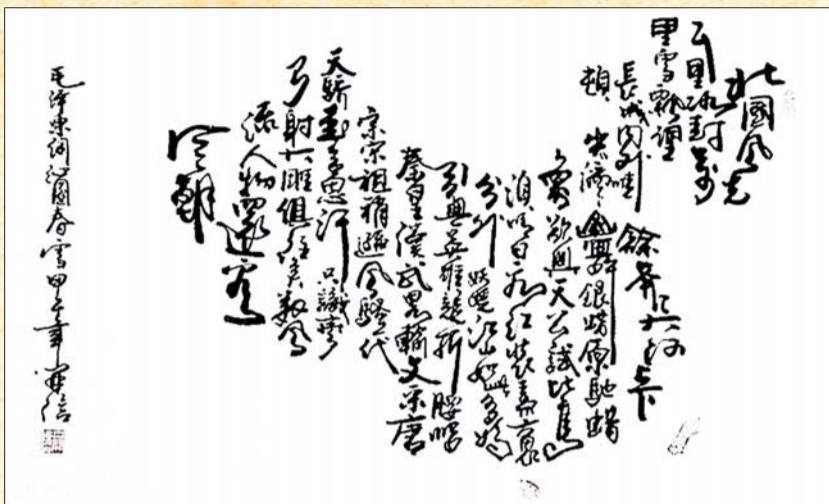 北國風光
千里冰封萬
里雪飄望
長城内外惟
餘莽大河上下
頓失滔滔山舞銀蛇原馳蠟
象欲與天公試比高
須晴日看紅裝素裹
分外妖嬈江山如此多嬌
引無英雄競折腰惜
秦皇漢武略輸文采唐
宗宋祖稍遜風騷一代
天驕成吉思汗只識彎
弓射大雕俱往矣數風
流人物還看
今朝
毛泽東詞沁園春雪甲午年